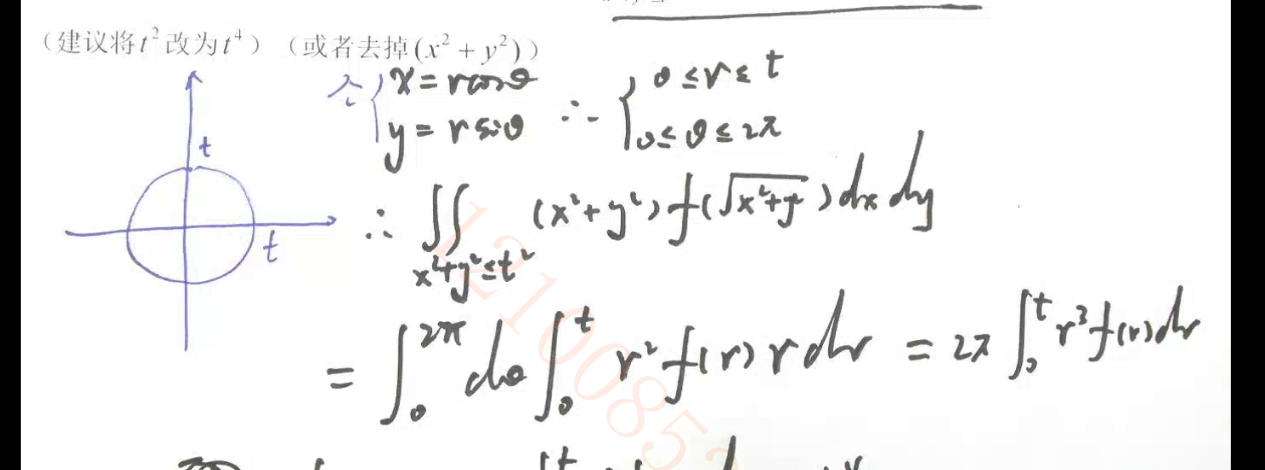 （建议将t²改为t⁴）（或者去掉(x²+y²)）
令{x=rcosθ y=rsinθ ∴{0≤r≤t 0≤θ≤2π
t
t
∴ ∬_{x²+y²≤t²} (x²+y²)f(√(x²+y²))dxdy
= ∫₀^{2π} dθ ∫₀^t r² f(r) r dr = 2π ∫₀^t r³f(r)dr
1210085